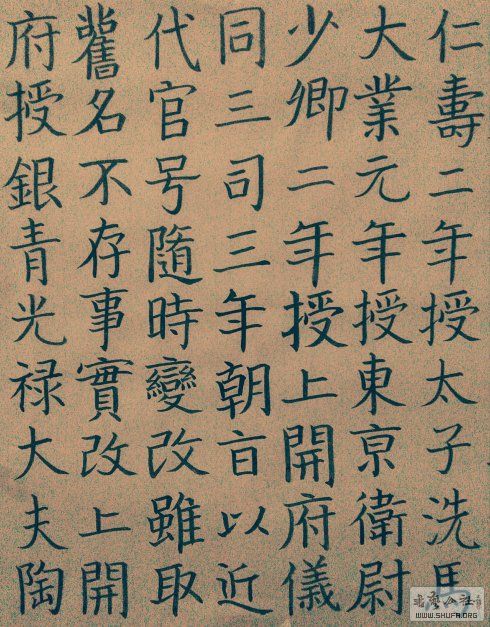 仁壽二年授太子洗馬
大業元年授東京衛尉
少卿二年授上開府儀
同三司三年朝旨以近
代官号隨時變改雖取
舊名不存事實改上開
府授銀青光禄大夫陶
WWW.SHUFA.ORG